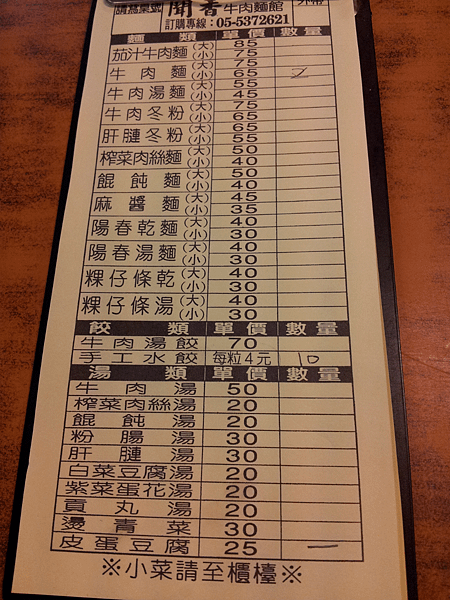 聞香牛肉麵館
訂購專線：05-5372621
麵類 單價 數量
茄汁牛肉麵 (大) 85
(小) 75
牛肉麵 (大) 75
(小) 65
牛肉湯麵 (大) 55
(小) 45
牛肉冬粉 (大) 75
(小) 65
肝腫冬粉 (大) 65
(小) 55
榨菜肉絲麵 (大) 50
(小) 40
餛飩麵 (大) 50
(小) 40
麻醬麵 (大) 45
(小) 35
陽春乾麵 (大) 40
(小) 30
陽春湯麵 (大) 40
(小) 30
粿仔條乾 (大) 40
(小) 30
粿仔條湯 (大) 40
(小) 30
餃類 單價 數量
牛肉湯餃 70
手工水餃 每粒4元 10
湯類 單價 數量
牛肉湯 50
榨菜肉絲湯 20
餛飩湯 30
粉腸湯 30
肝腫湯 30
白菜豆腐湯 20
紫菜蛋花湯 20
貢丸湯 20
燙青菜 30
皮蛋豆腐 25 一
※小菜請至櫃檯※